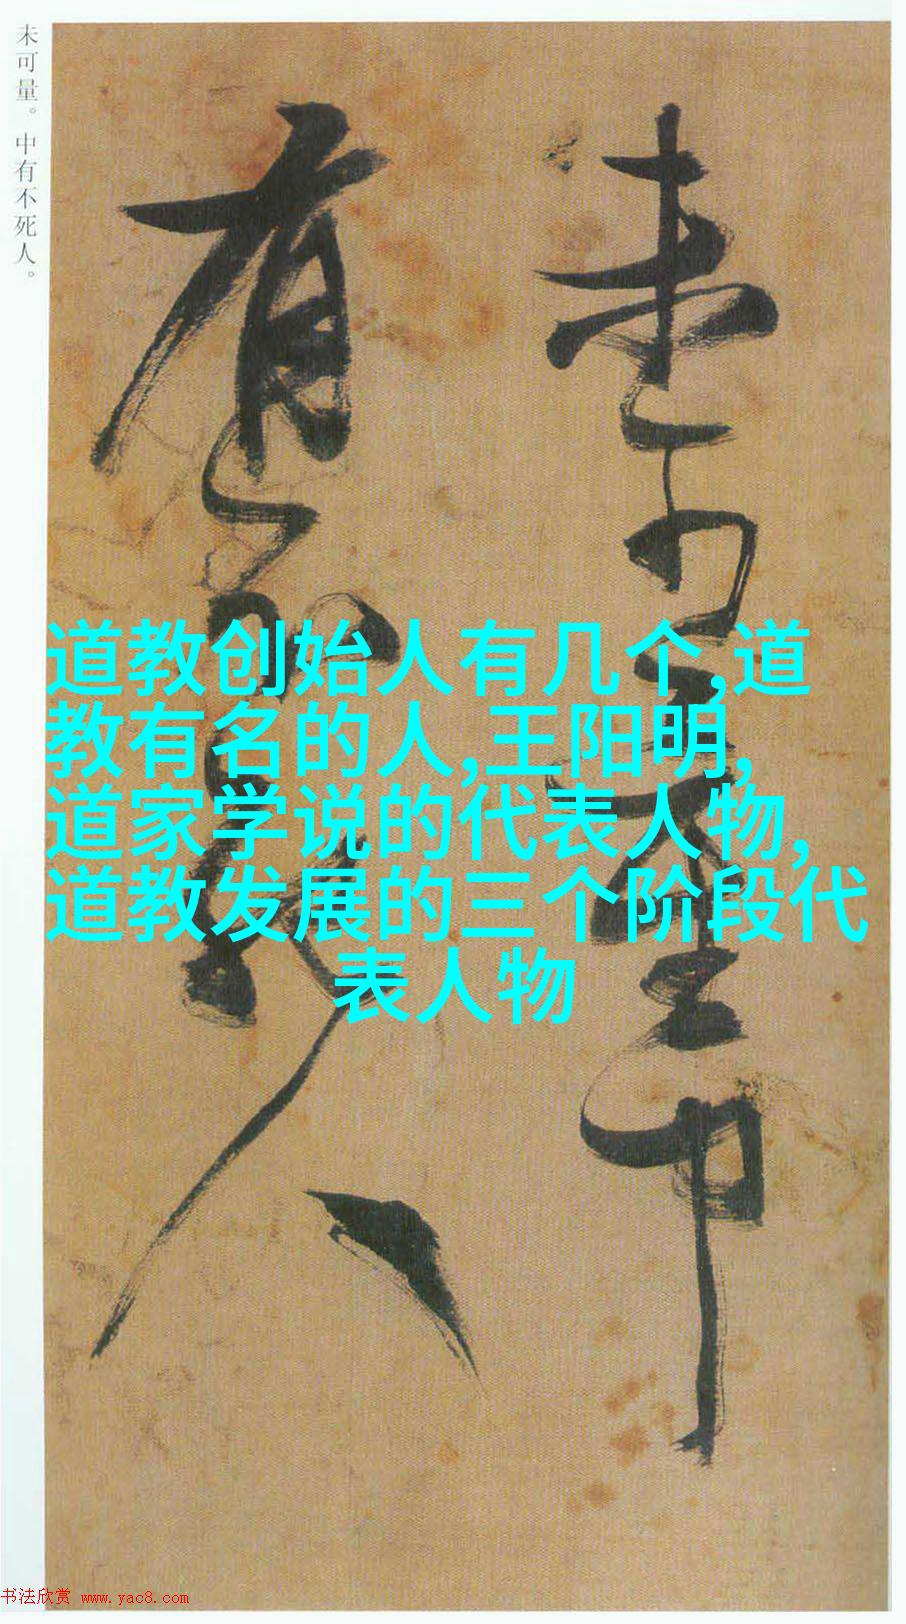 未可量。中有不死人。
未可量中
有不死人
道教创始人有几个,道
教有名的人,王阳明,
道家学说的代表人物,
道教发展的三个阶段代
表人物
书法欣赏 www.yac8.com